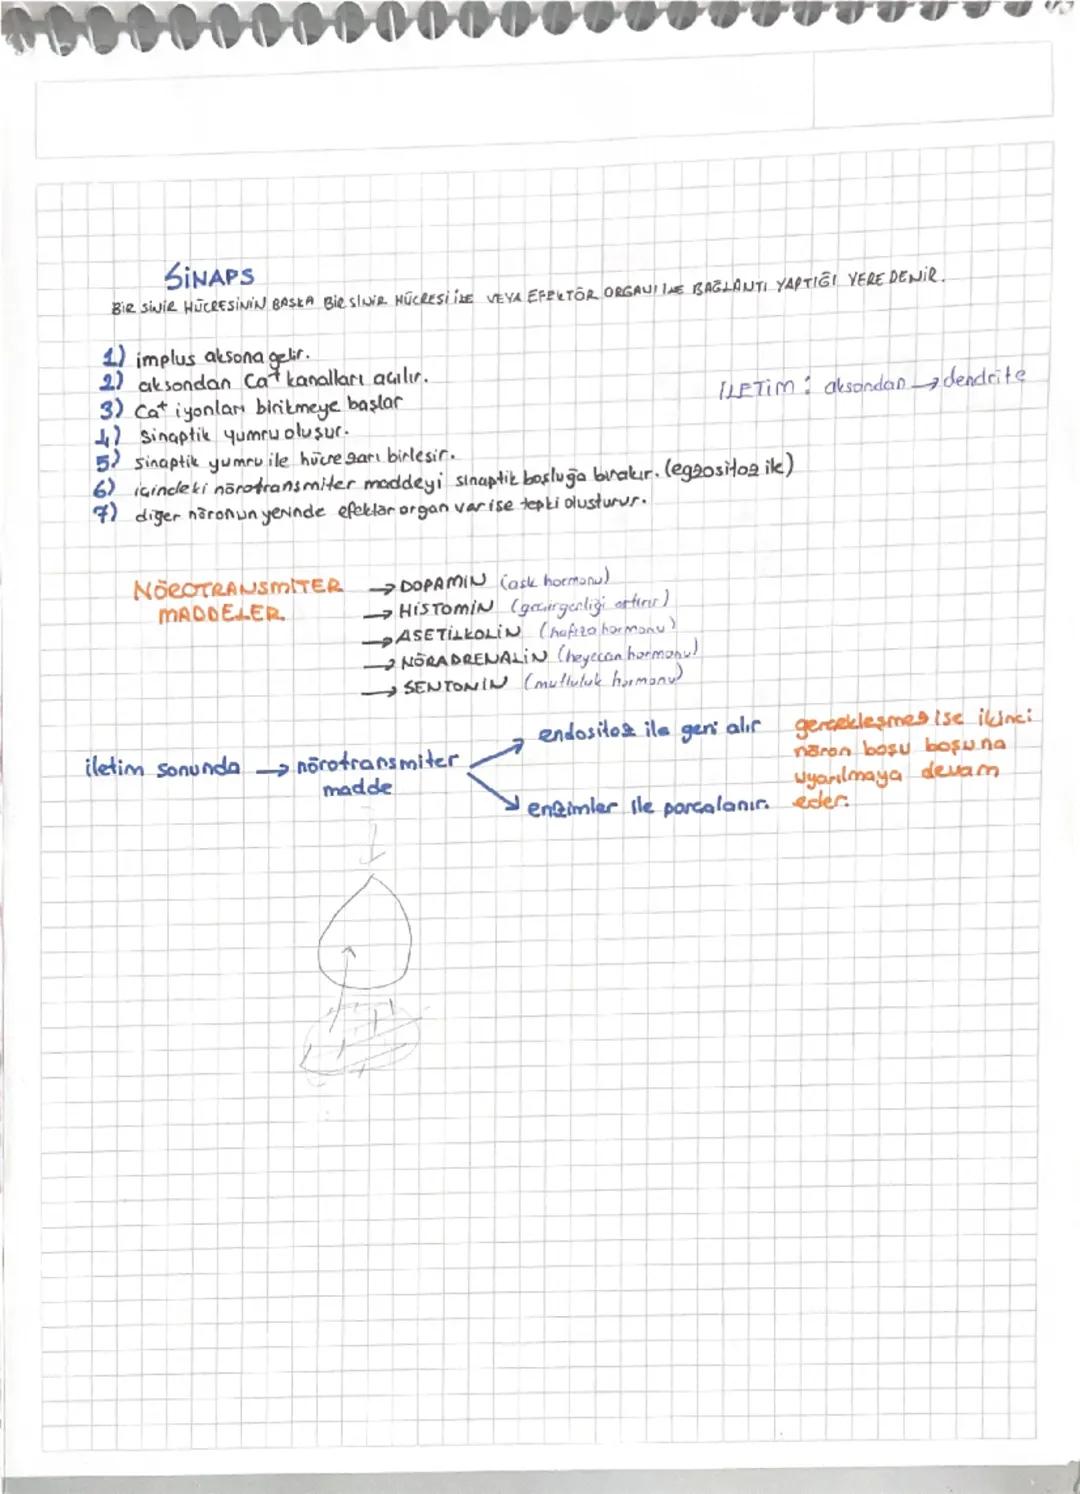 SİNAPS
BİR SİNİR HÜCRESİNİN BAŞKA BİR SİNİR HÜCRESİ İLE VEYA EFEKTÖR ORGANI İLE BAĞLANTI YAPTIĞI YERE DENİR.
1) implus aksona gelir.
2) aksondan Ca⁺ kanalları açılır.
3) Ca⁺ iyonları birikmeye başlar
4) Sinaptik yumru oluşur.
5) sinaptik yumru ile hücre zarı birleşir.
6) içindeki nörotransmiter maddeyi sinaptik boşluğa bırakır. (egzositoz ile)
7) diğer nöronun yerinde efektör organ var ise tepki oluşturur.
İLETİM : aksondan → dendrite
NÖROTRANSMİTER MADDELER
→ DOPAMİN (aşk hormonu)
→ HİSTOMİN (geçirgenliği artırır)
→ ASETİLKOLİN (hafıza hormonu)
→ NÖRADRENALİN (heyecan hormonu)
→ SENTONİN (mutluluk hormonu)
iletim sonunda → nörotransmiter madde
endositoz ile geri alır
enzimler ile parçalanır.
gerçekleşmez ise ikinci
nöron boşu boşuna
uyarılmaya devam
eder.